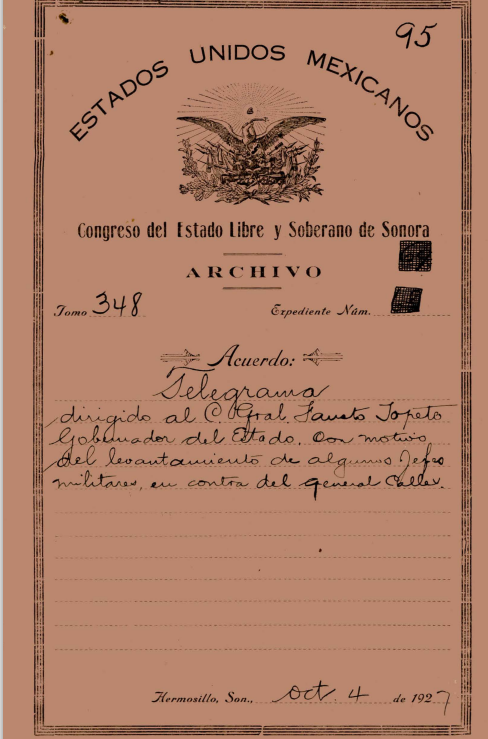 95
ESTADOS UNIDOS MEXICANOS
Congreso del Estado Libre y Soberano de Sonora
ARCHIVO
Tomo 348 Expediente Núm.
Acuerdo:
Telegrama
dirigido al C. Gral. Fausto Topete
Gobernador del Estado. Con motivo
del levantamiento de algunos Jefes
militares, en contra del general Calles.
Hermosillo, Son., Oct. 4 de 1927